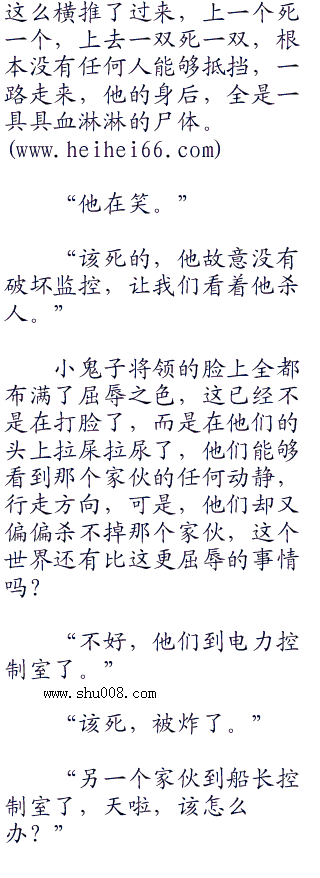 这么横推了过来，上一个死
一个，上去一双死一双，根
本没有任何人能够抵挡，一
路走来，他的身后，全是一
具具血淋淋的尸体。
(www.heihei66.com)
“他在笑。”
“该死的，他故意没有
破坏监控，让我们看着他杀
人。”
小鬼子将领的脸上全都
布满了屈辱之色，这已经不
是在打脸了，而是在他们的
头上拉屎拉尿了，他们能够
看到那个家伙的任何动静，
行走方向，可是，他们却又
偏偏杀不掉那个家伙，这个
世界还有比这更屈辱的事情
吗？
“不好，他们到电力控
制室了。”
www.shu008.com
“该死，被炸了。”
“另一个家伙到船长控
制室了，天啦，该怎么
办？”